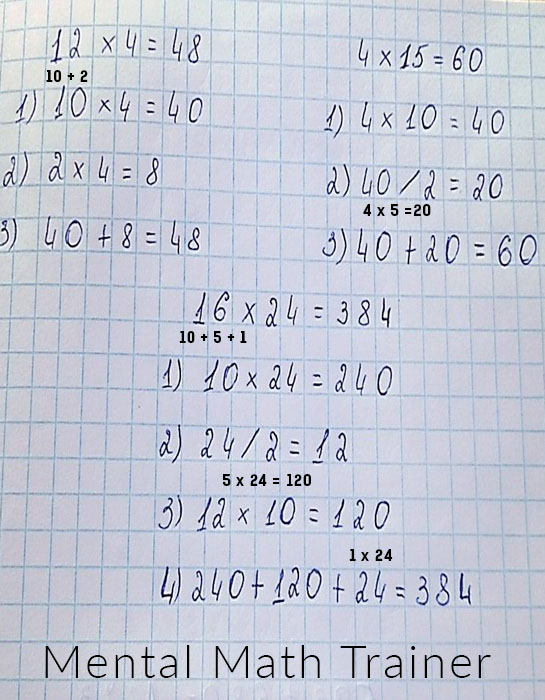 12 × 4 = 48
10 + 2
1) 10 × 4 = 40
2) 2 × 4 = 8
3) 40 + 8 = 48
4 × 15 = 60
1) 4 × 10 = 40
2) 40 / 2 = 20
4 x 5 =20
3) 40 + 20 = 60
16 × 24 = 384
10 + 5 + 1
1) 10 × 24 = 240
2) 24 / 2 = 12
5 x 24 = 120
3) 12 × 10 = 120
1 x 24
4) 240 + 120 + 24 = 384
Mental Math Trainer